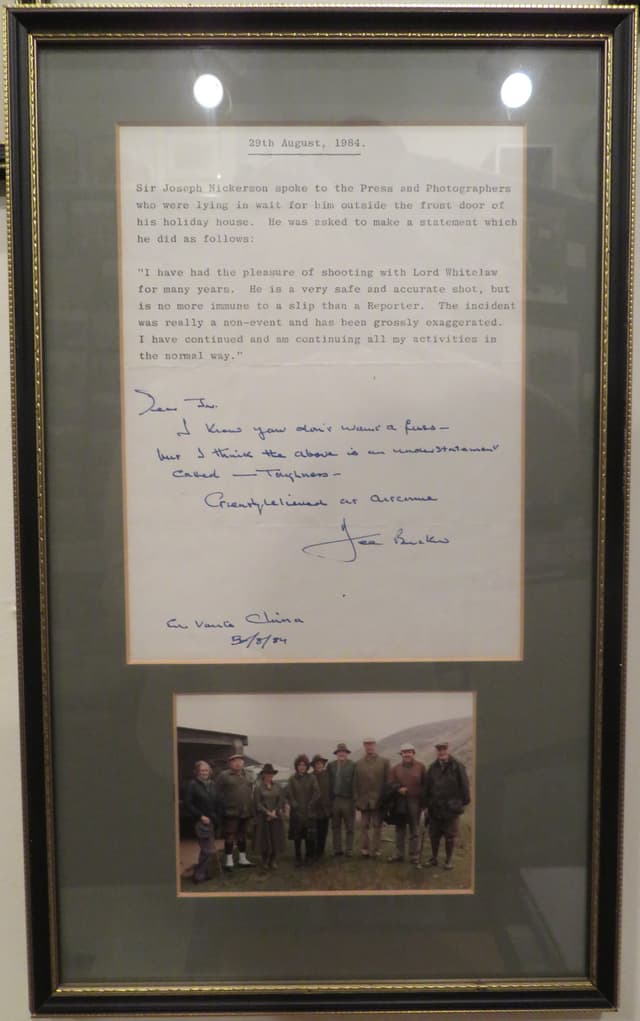 29th August, 1984.
Sir Joseph Nickerson spoke to the Press and Photographers
who were lying in wait for him outside the front door of
his holiday house. He was asked to make a statement which
he did as follows:
"I have had the pleasure of shooting with Lord Whitelaw
for many years. He is a very safe and accurate shot, but
is no more immune to a slip than a Reporter. The incident
was really a non-event and has been grossly exaggerated.
I have continued and am continuing all my activities in
the normal way."
Dear
I know you don't want a fuss -
but I think the above is an understatement
called - Toughness -
Greatly relieved at
China
30/8/84